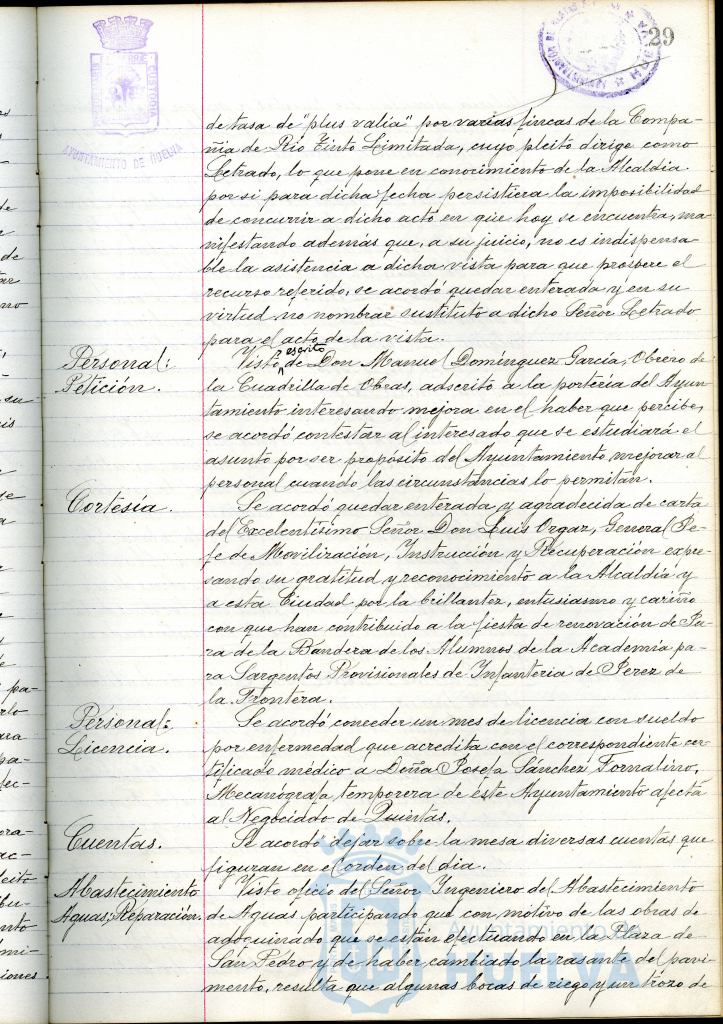 29
AYUNTAMIENTO DE HUELVA
de tasa de "plus valia" por varias fincas de la Compa-
ñia de Rio Tinto Limitada, cuyo pleito dirige como
Letrado, lo que pone en conocimiento de la Alcaldia
por si para dicha fecha persistiera la imposibilidad
de concurrir a dicho acto en que hoy se encuentra, ma-
nifestando además que, a su juicio, no es indispensa-
ble la asistencia a dicha vista para que prospere el
recurso referido, se acordó quedar enterada y en su
virtud no nombrar sustituto a dicho Señor Letrado
para el acto de la vista.
Personal:
Petición.
Visto escrito de Don Manuel Dominguez García, Obrero de
la Cuadrilla de Obras, adscrito a la portería del Ayun-
tamiento interesando mejora en el haber que percibe,
se acordó contestar al interesado que se estudiará el
asunto por ser propósito del Ayuntamiento mejorar al
personal cuando las circunstancias lo permitan.
Cortesía.
Se acordó quedar enterada y agradecida de carta
del Excelentísimo Señor Don Luis Orgaz, General Je-
fe de Movilización, Instrucción y Recuperación expre-
sando su gratitud y reconocimiento a la Alcaldía y
a esta Ciudad por la brillantez, entusiasmo y cariño
con que han contribuido a la fiesta de renovación de Ju-
ra de la Bandera de los Alumnos de la Academia pa-
ra Sargentos Provisionales de Infanteria de Jerez de
la Frontera.
Personal:
Licencia.
Se acordó conceder un mes de licencia con sueldo
por enfermedad que acredita con el correspondiente cer-
tificado médico a Doña Josefa Sánchez Fornalino,
Mecanógrafa temporera de este Ayuntamiento afecta
al Negociado de Quintas.
Cuentas.
Se acordó dejar sobre la mesa diversas cuentas que
figuran en el orden del dia.
Abastecimiento
Aguas; Reparación.
Visto oficio del Señor Ingeniero del Abastecimiento
de Aguas participando que con motivo de las obras de
adoquinado que se están efectuando en la Plaza de
San Pedro y de haber cambiado la rasante del pavi-
mento, resulta que algunas bocas de riego y un trozo de
Ayuntamiento de
HUELVA